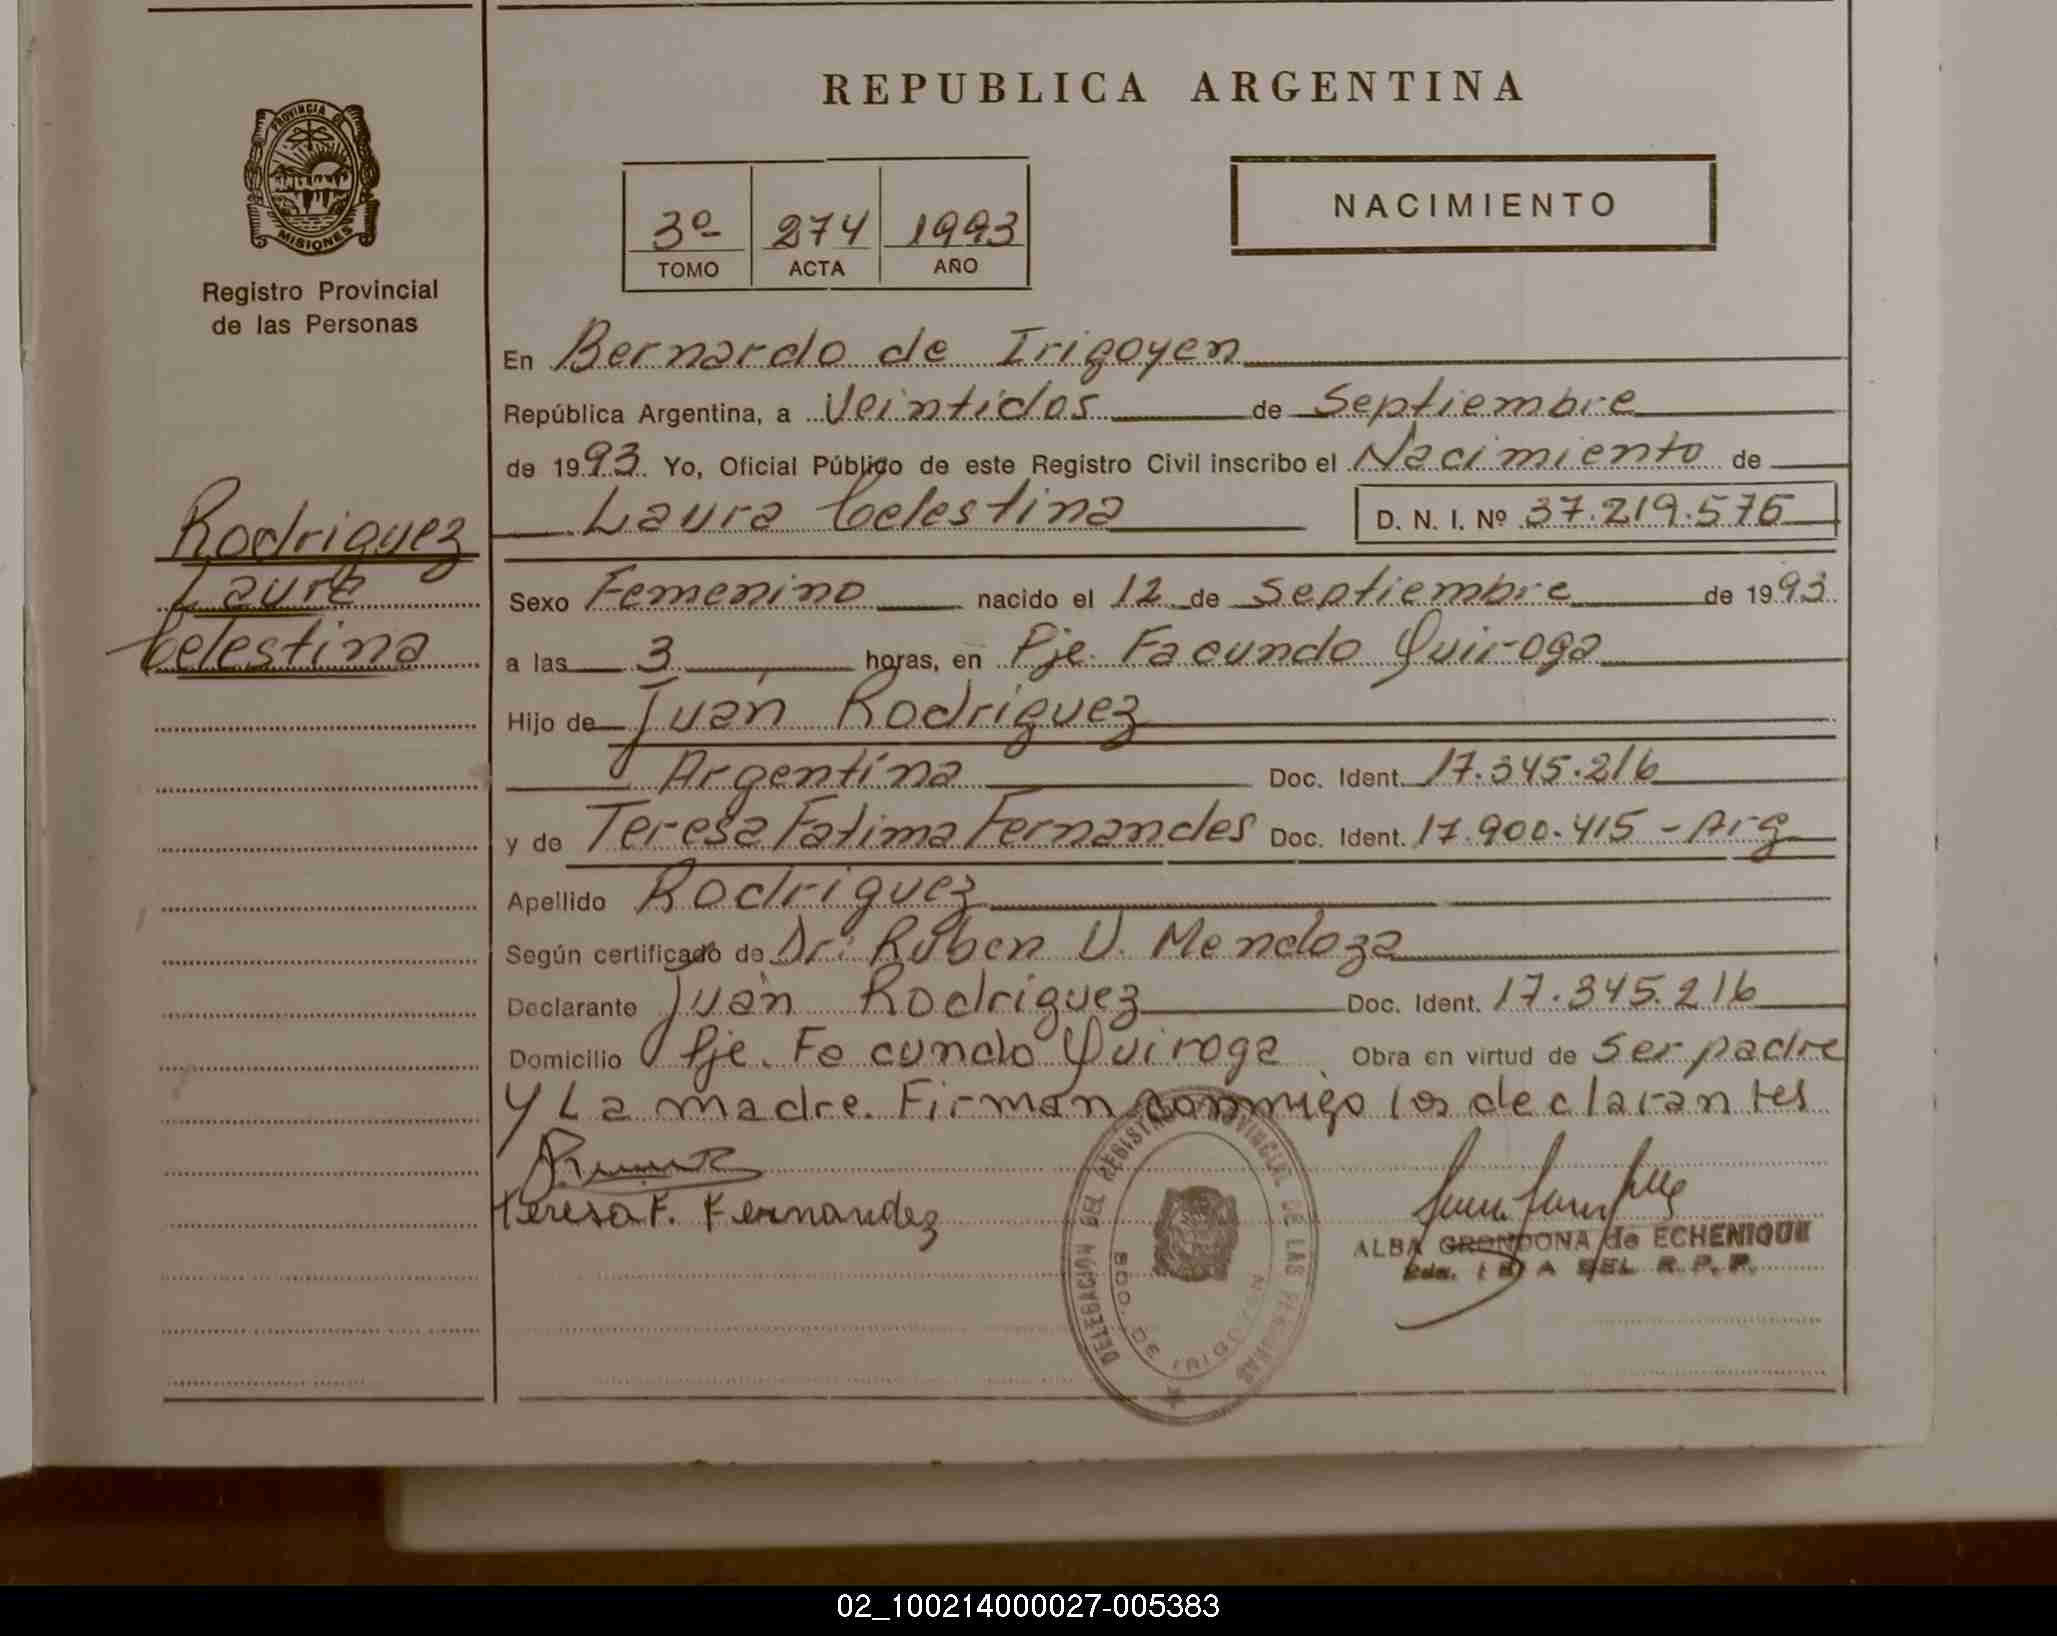 REPUBLICA ARGENTINA
PROVINCIA DE
MISIONES
Registro Provincial
de las Personas
3º 274 1993
TOMO ACTA AÑO
NACIMIENTO
En Bernardo de Irigoyen
República Argentina, a Veintidos de Septiembre
de 1993. Yo, Oficial Público de este Registro Civil inscribo el Nacimiento de
Laura Celestina D. N. I. Nº 37.219.576
Rodriguez
Laura
Celestina
Sexo Femenino nacido el 12 de Septiembre de 1993
a las 3 horas, en Pje. Facundo Quiroga
Hijo de Juan Rodriguez
Argentina Doc. Ident. 17.345.216
y de Teresa Fatima Fernandes Doc. Ident. 17.900.415 - Arg
Apellido Rodriguez
Según certificado de Dr: Ruben V. Mendoza
Declarante Juan Rodriguez Doc. Ident. 17.345.216
Domicilio Pje. Facundo Quiroga Obra en virtud de Ser padre
y La madre. Firman conmigo los declarantes
Teresa F. Fernandez
DELEGACION DEL REGISTRO PROVINCIAL DE LAS PERSONAS
BDO. DE IRIGOYEN
ALBA GRONDONA de ECHENIQUE
DEL R. P. P.
02_100214000027-005383